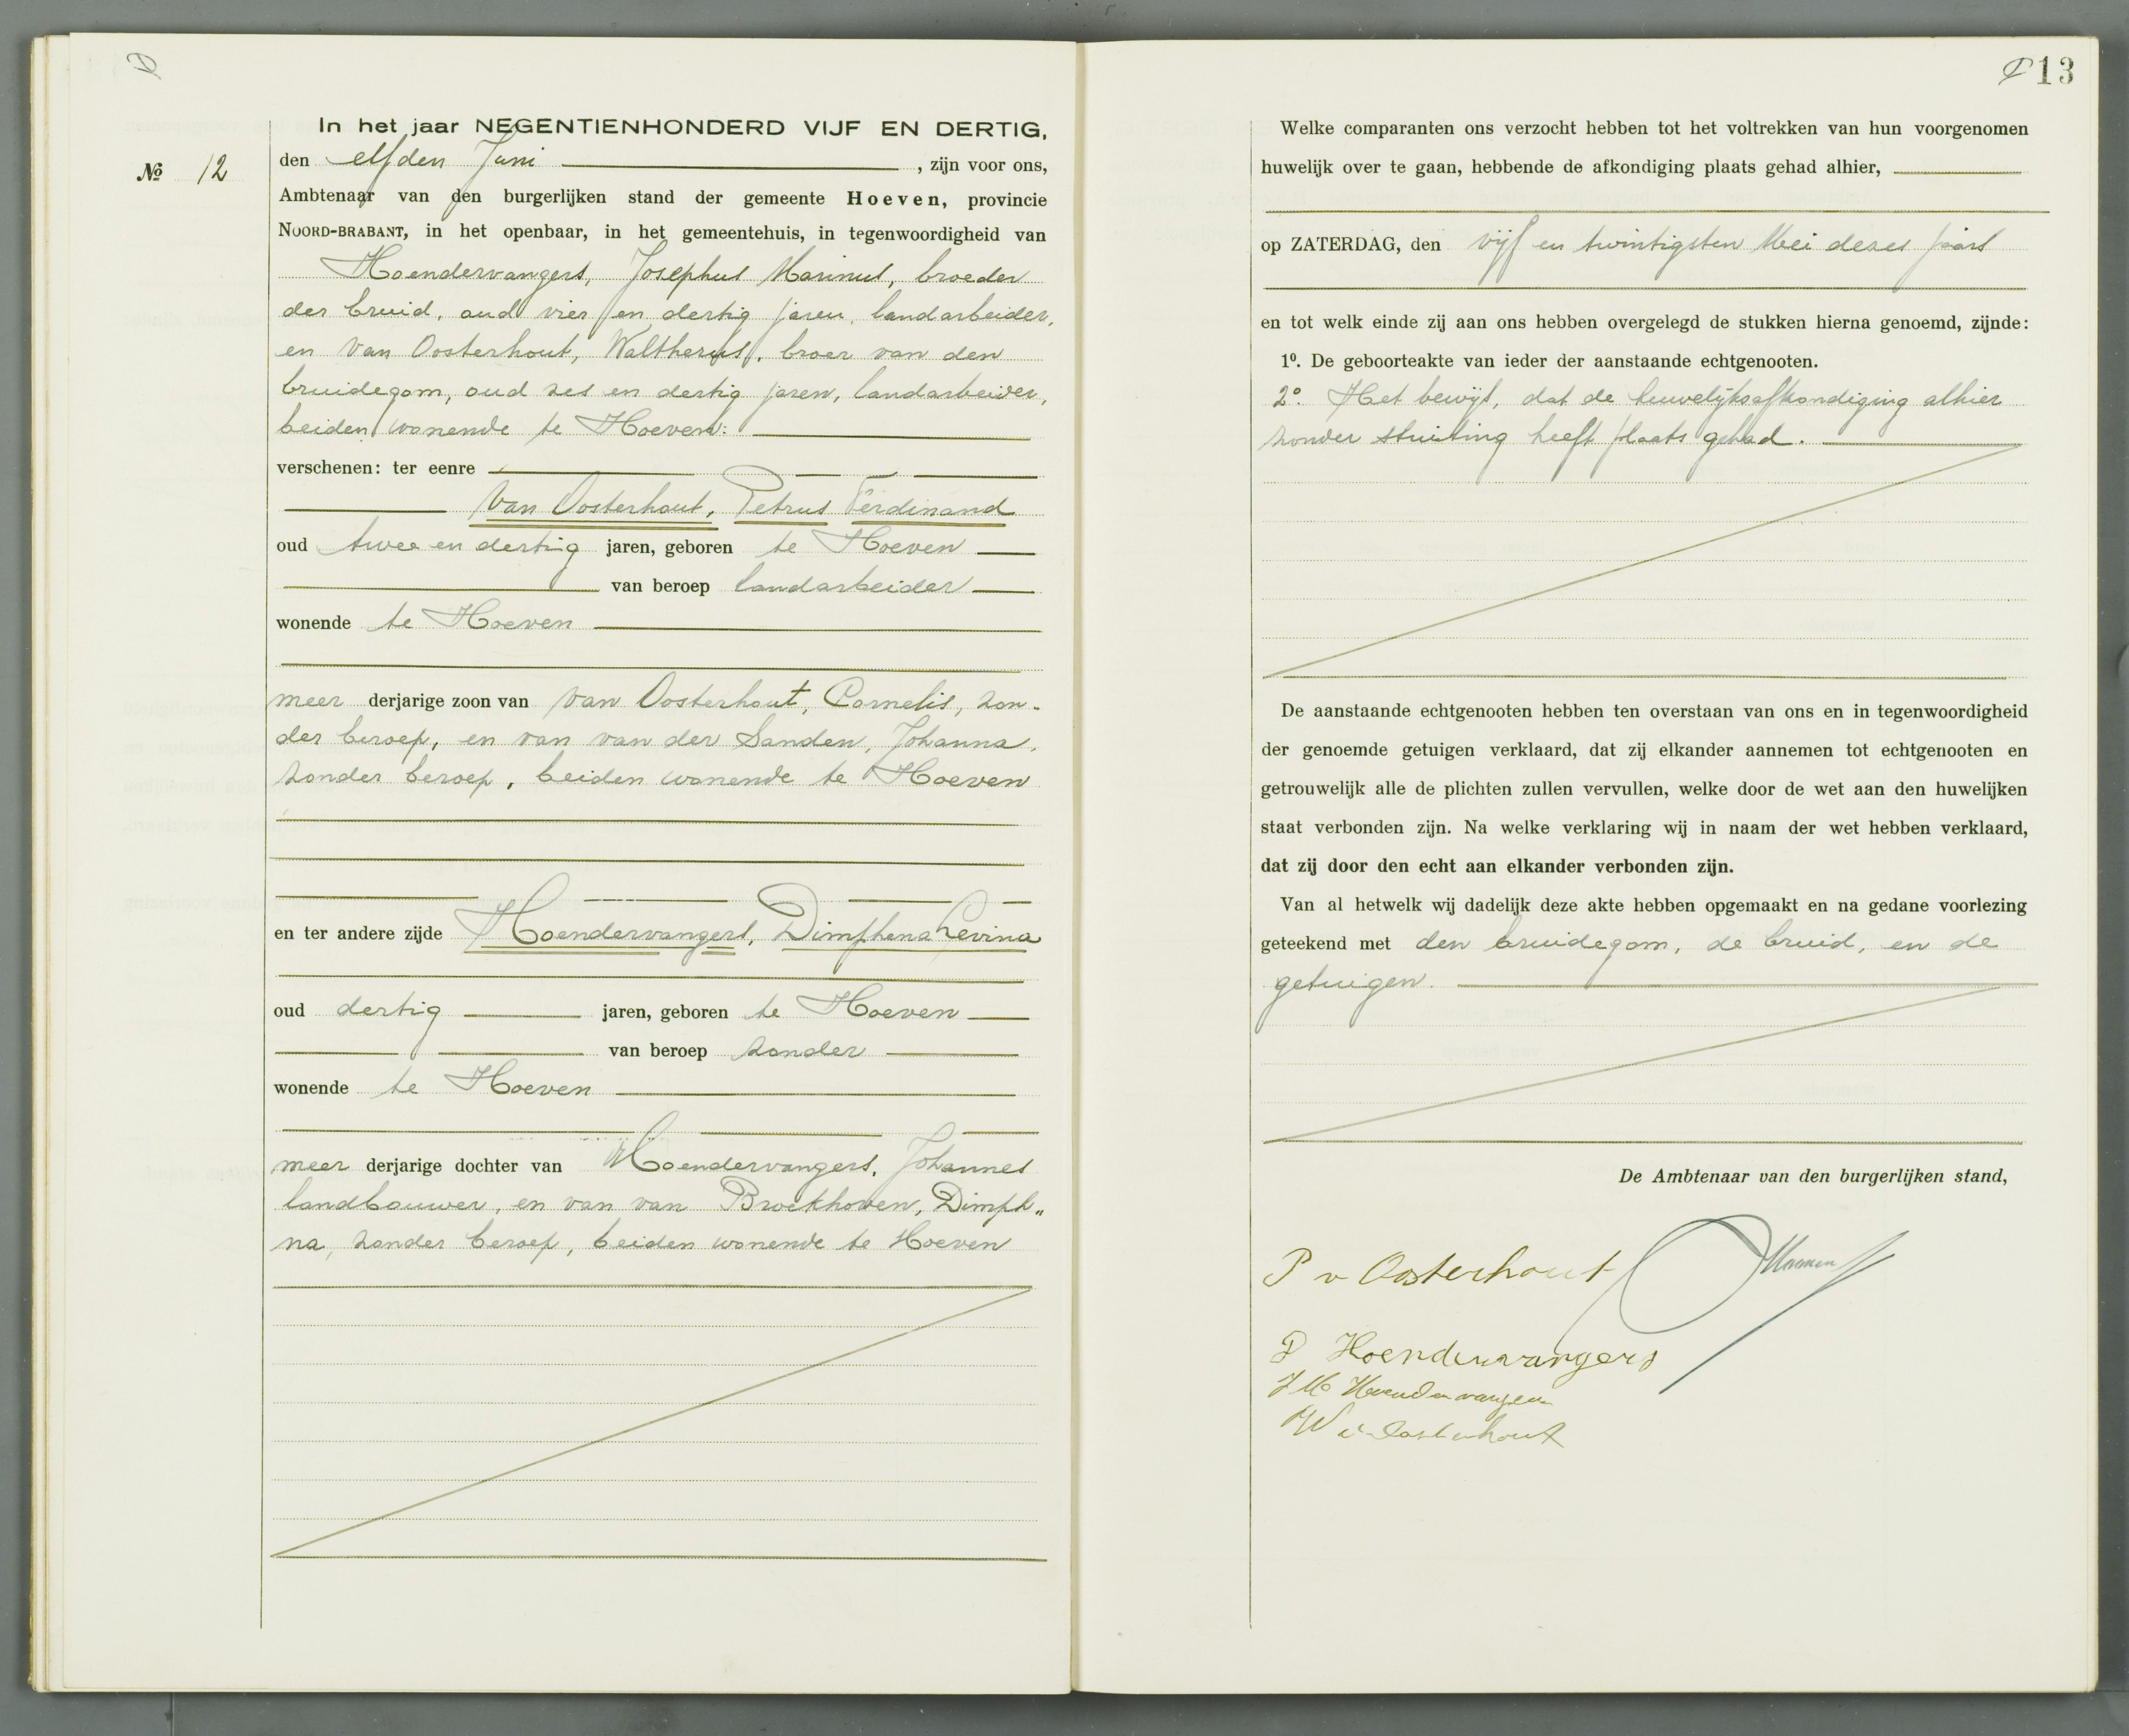 In het jaar NEGENTIENHONDERD VIJF EN DERTIG,
№ 12
den elfden Juni , zijn voor ons,
Ambtenaar van den burgerlijken stand der gemeente Hoeven, provincie
NOORD-BRABANT, in het openbaar, in het gemeentehuis, in tegenwoordigheid van
Hoendervangers, Josephus Marinus, broeder
der bruid, oud vier en dertig jaren, landarbeider,
en Van Oosterhout, Waltherus, broer van den
bruidegom, oud zes en dertig jaren, landarbeider,
beiden wonende te Hoeven:
verschenen: ter eenre
Van Oosterhout, Petrus Ferdinand
oud twee en dertig jaren, geboren te Hoeven
van beroep landarbeider
wonende te Hoeven
meer derjarige zoon van Van Oosterhout, Cornelis, zon-
der beroep, en van van der Sanden, Johanna,
zonder beroep, beiden wonende te Hoeven
en ter andere zijde Hoendervangers, Dimphena Levina
oud dertig jaren, geboren te Hoeven
van beroep zonder
wonende te Hoeven
meer derjarige dochter van Hoendervangers, Johannes
landbouwer, en van van Broekhoven, Dimph„
na, zonder beroep, beiden wonende te Hoeven
13
Welke comparanten ons verzocht hebben tot het voltrekken van hun voorgenomen
huwelijk over te gaan, hebbende de afkondiging plaats gehad alhier,
op ZATERDAG, den vijf en twintigsten Mei dezes jaars
en tot welk einde zij aan ons hebben overgelegd de stukken hierna genoemd, zijnde:
1⁰. De geboorteakte van ieder der aanstaande echtgenooten.
2⁰. Het bewijs, dat de huwelijksafkondiging alhier
zonder stuiting heeft plaats gehad.
De aanstaande echtgenooten hebben ten overstaan van ons en in tegenwoordigheid
der genoemde getuigen verklaard, dat zij elkander aannemen tot echtgenooten en
getrouwelijk alle de plichten zullen vervullen, welke door de wet aan den huwelijken
staat verbonden zijn. Na welke verklaring wij in naam der wet hebben verklaard,
dat zij door den echt aan elkander verbonden zijn.
Van al hetwelk wij dadelijk deze akte hebben opgemaakt en na gedane voorlezing
geteekend met den bruidegom, de bruid, en de
getuigen.
De Ambtenaar van den burgerlijken stand,
P v Oosterhout
D Hoendervangers
J M Hoendervangers
W v Oosterhout